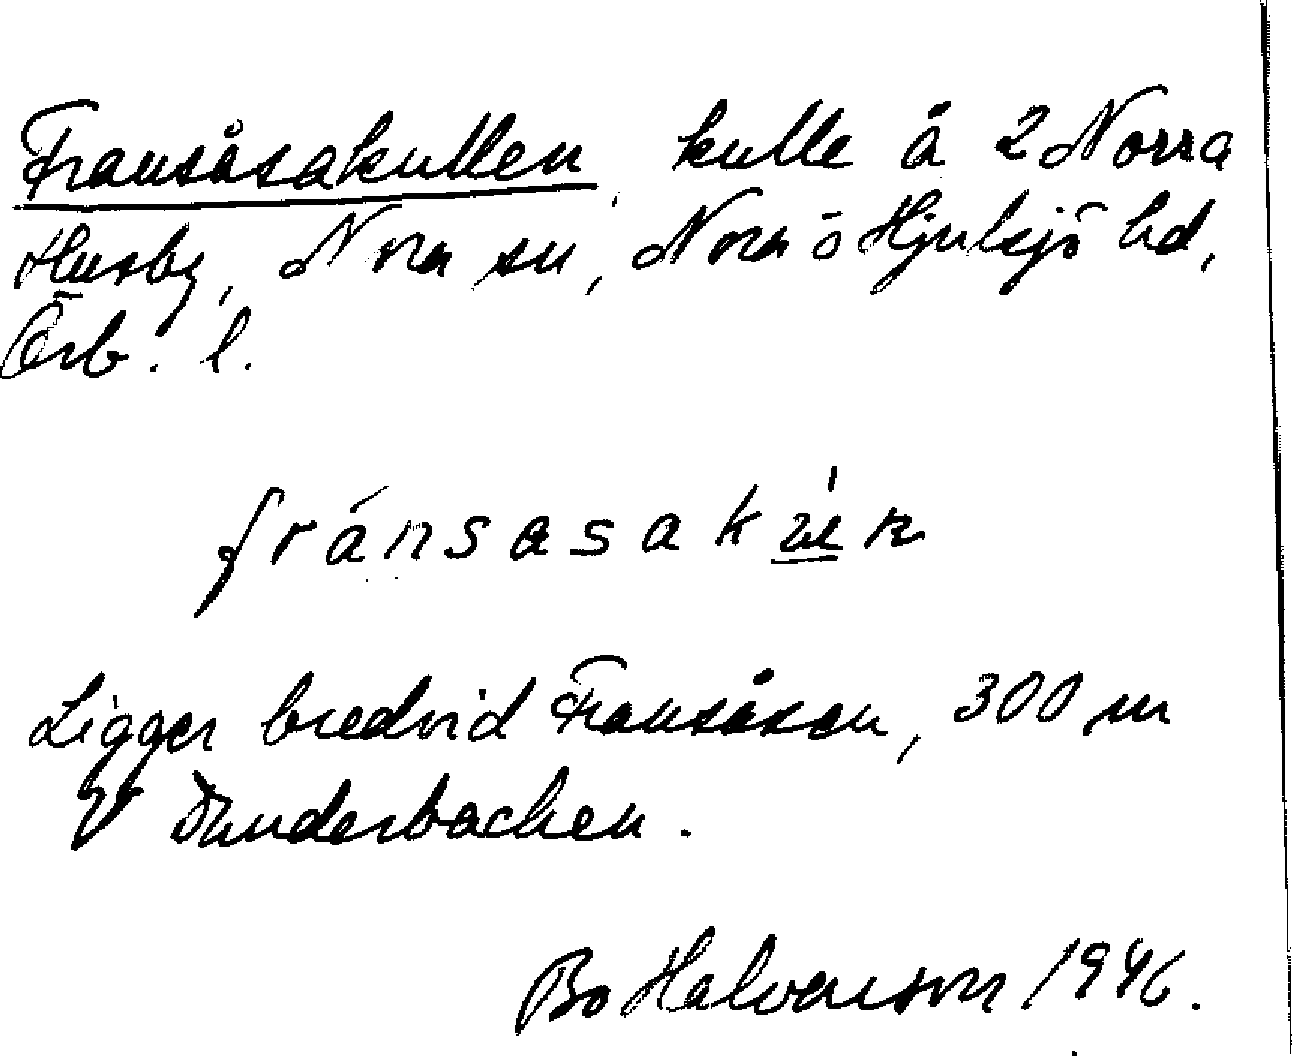 Fransåsakullen, kulle å 2 Norra
Husby, Nora sn, Nora o Hjulsjö hd,
Örb. l.
fránsasak
Ligger bredvid Fransåsen, 300 m
V Dunderbacken.
Bo Halvarson 1946.